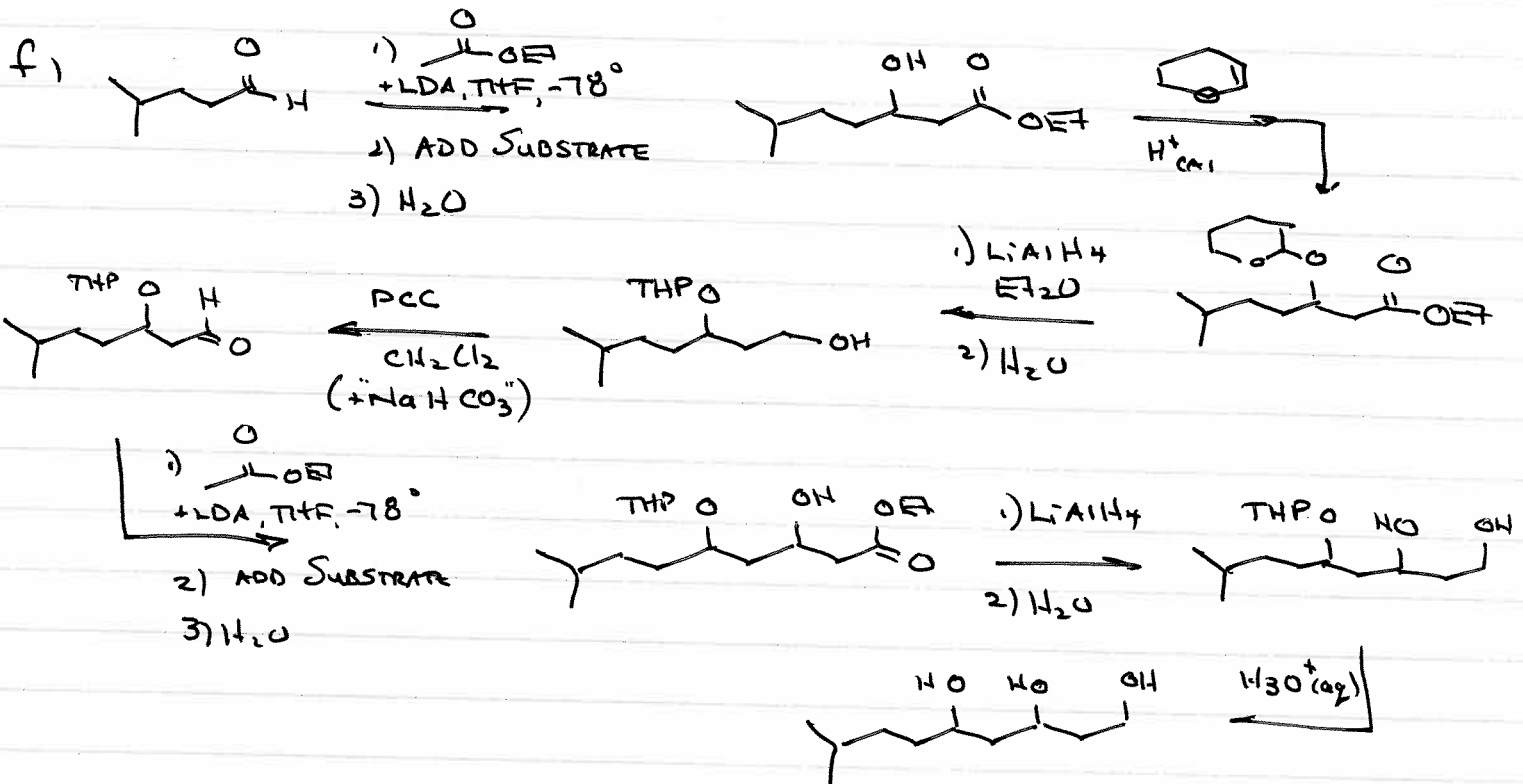 f)
O
H
1) O OEt
+LDA, THF, -78°
2) ADD SUBSTRATE
3) H2O
OH O
OEt
O
H+ cat
O O O
OEt
1) LiAlH4
Et2O
2) H2O
THP O
OH
PCC
CH2Cl2
(+"NaHCO3")
THP O H
O
1) O OEt
+LDA, THF, -78°
2) ADD SUBSTRATE
3) H2O
THP O OH OEt
O
1) LiAlH4
2) H2O
THP O HO OH
H3O+(aq)
HO HO OH